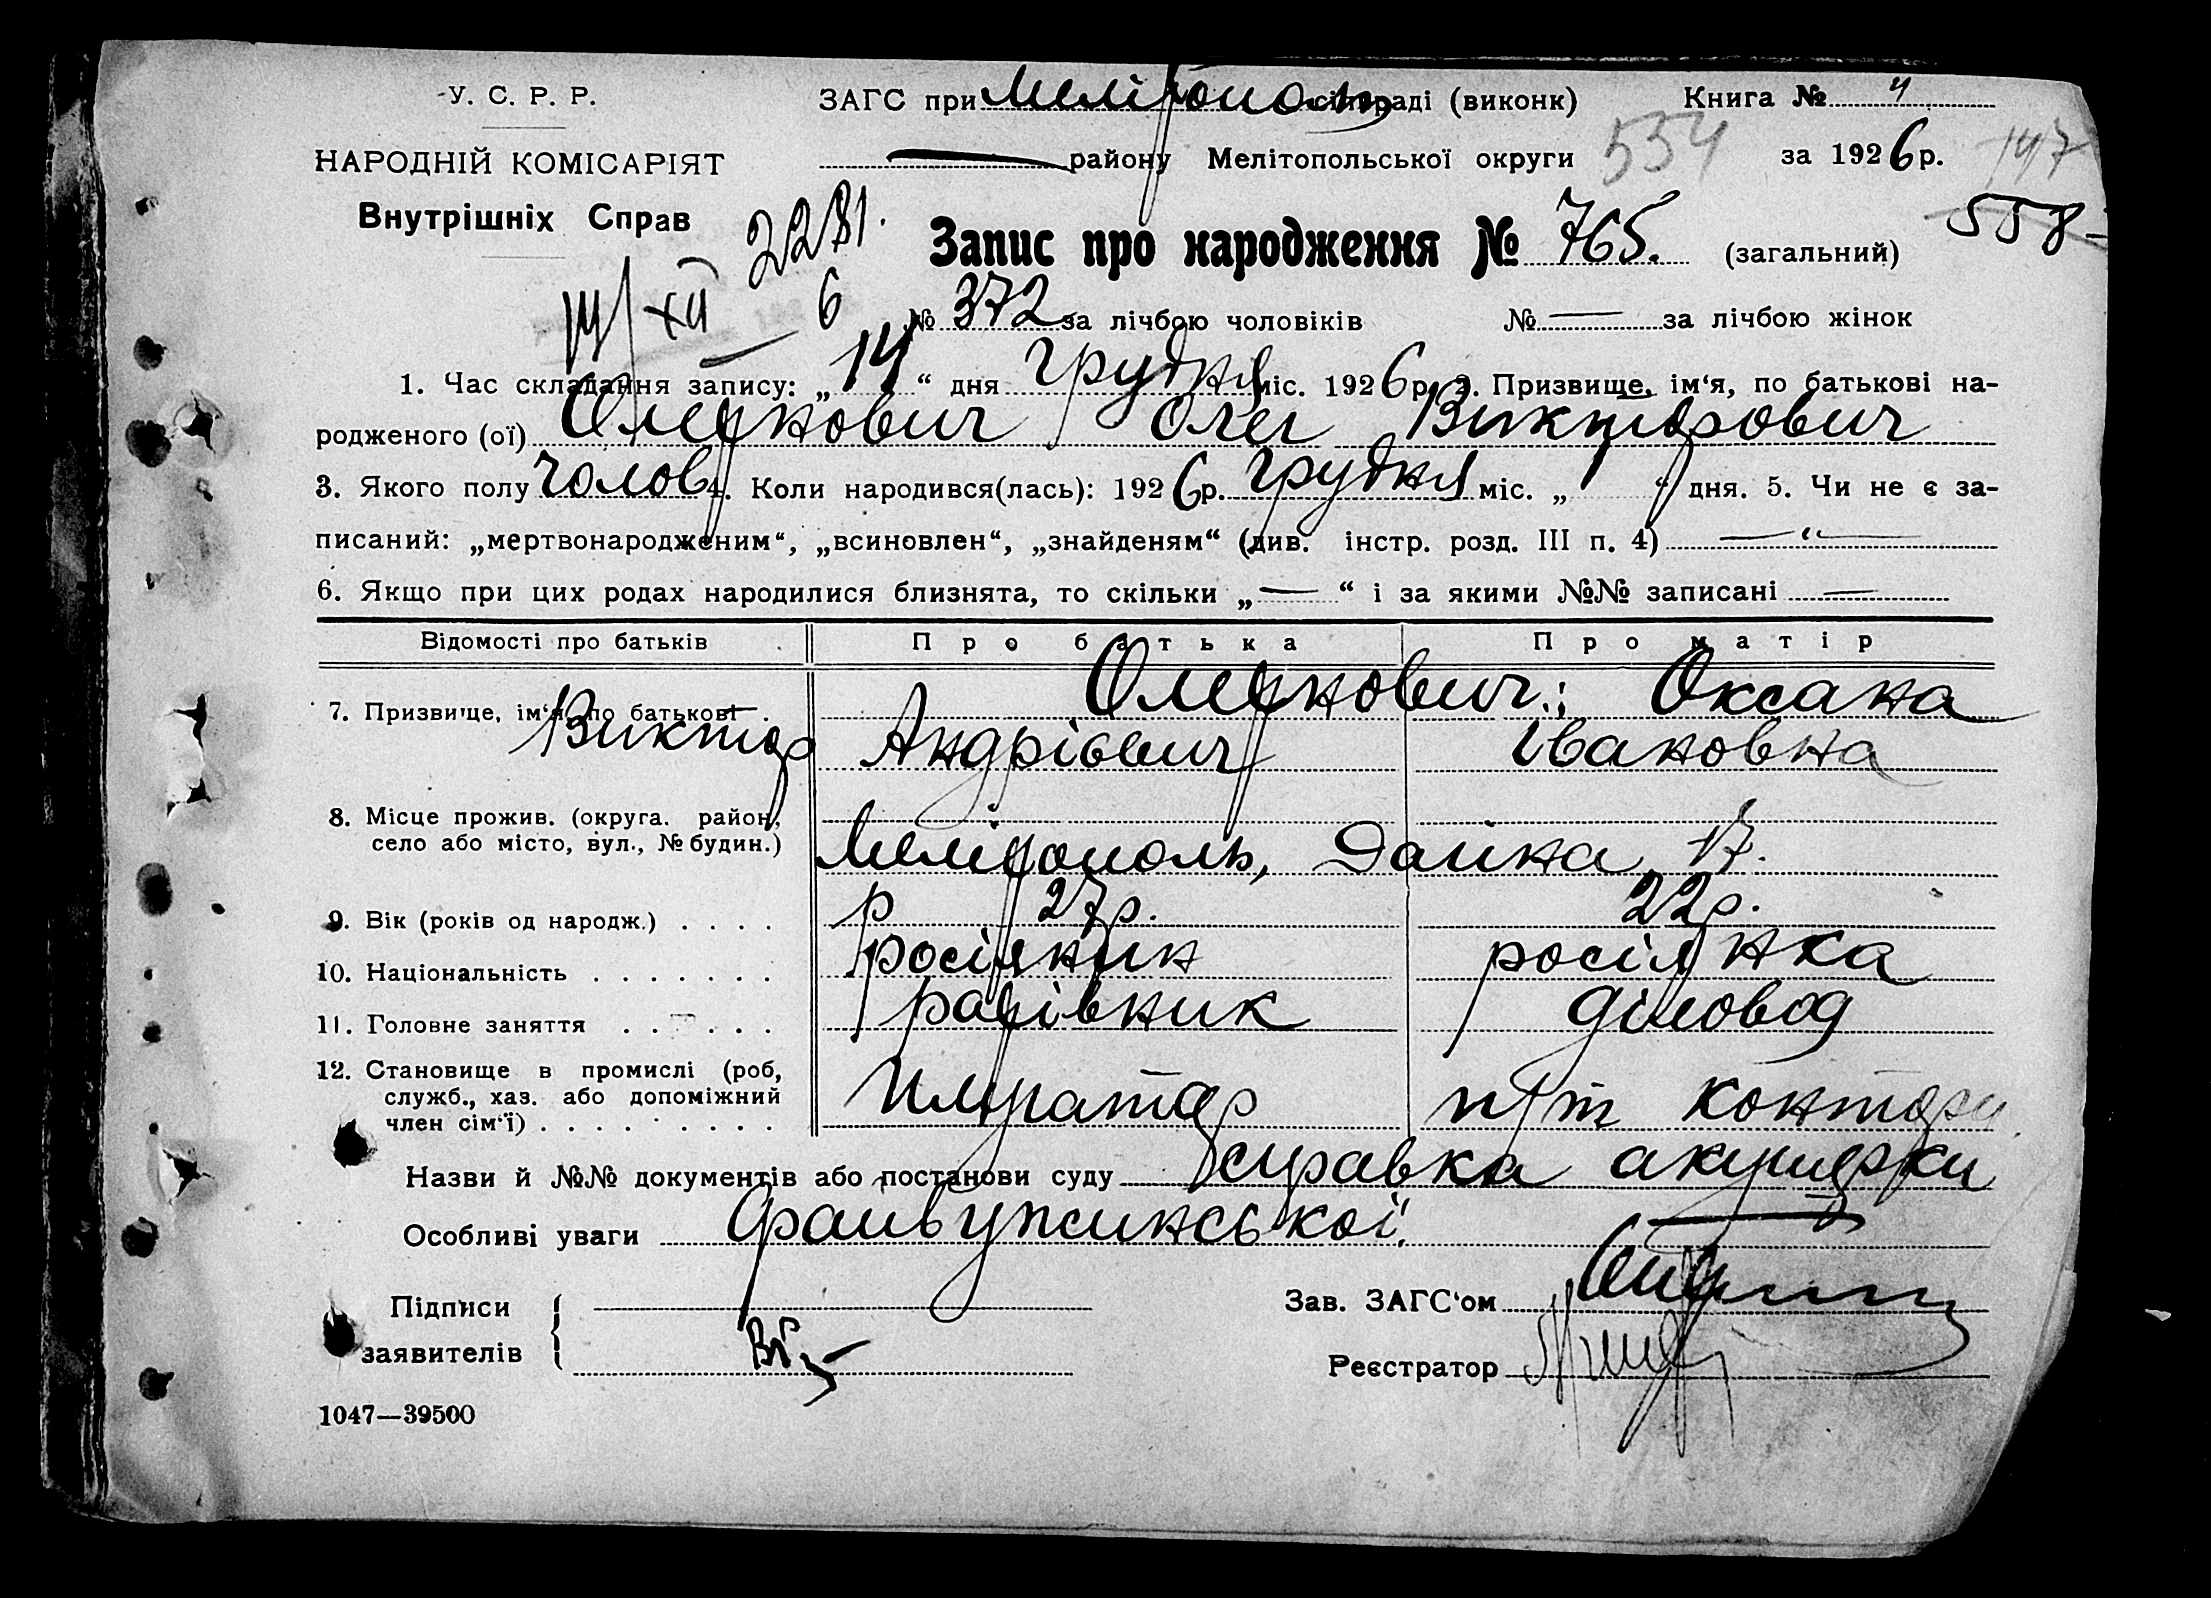 У. С. Р. Р.
ЗАГС при Мелітополь сільраді (виконк)
Книга № 4
НАРОДНІЙ КОМІСАРІЯТ
району Мелітопольської округи
534
за 1926 р.
147
Внутрішніх Справ
558
2281.
Запис про народження № 765. (загальний)
14/XII 6
№ 372 за лічбою чоловіків
№ — за лічбою жінок
1. Час складання запису: „14“ дня грудня міс. 1926 р. 2. Призвище, ім‘я, по батькові на-
родженого (ої) Олег Викторович
3. Якого полу чолов 4. Коли народився(лась): 1926 р. грудня міс. „ “ дня. 5. Чи не є за-
писаний: „мертвонародженим“, „всиновлен“, „знайденям“ (див. інстр. розд. III п. 4) — “ —
6. Якщо при цих родах народилися близнята, то скільки „—“ і за якими №№ записані —
Відомості про батьків
Про батька
Про матір
7. Призвище, ім‘я, по батькові
Оксана
Виктор Андрієвич
Івановна
8. Місце прожив. (округа. район,
село або місто, вул., № будин.)
Мелітополь, 17.
9. Вік (років од народж.)
27 р.
22 р.
10. Національність
росіянин
росіянка
11. Головне заняття
діловод
12. Становище в промислі (роб,
служб., хаз. або допоміжний
член сім‘ї)
контори
Назви й №№ документів або постанови суду справка акушерки
Особливі уваги
Підписи
заявителів
Зав. ЗАГС‘ом
Реєстратор
1047—39500